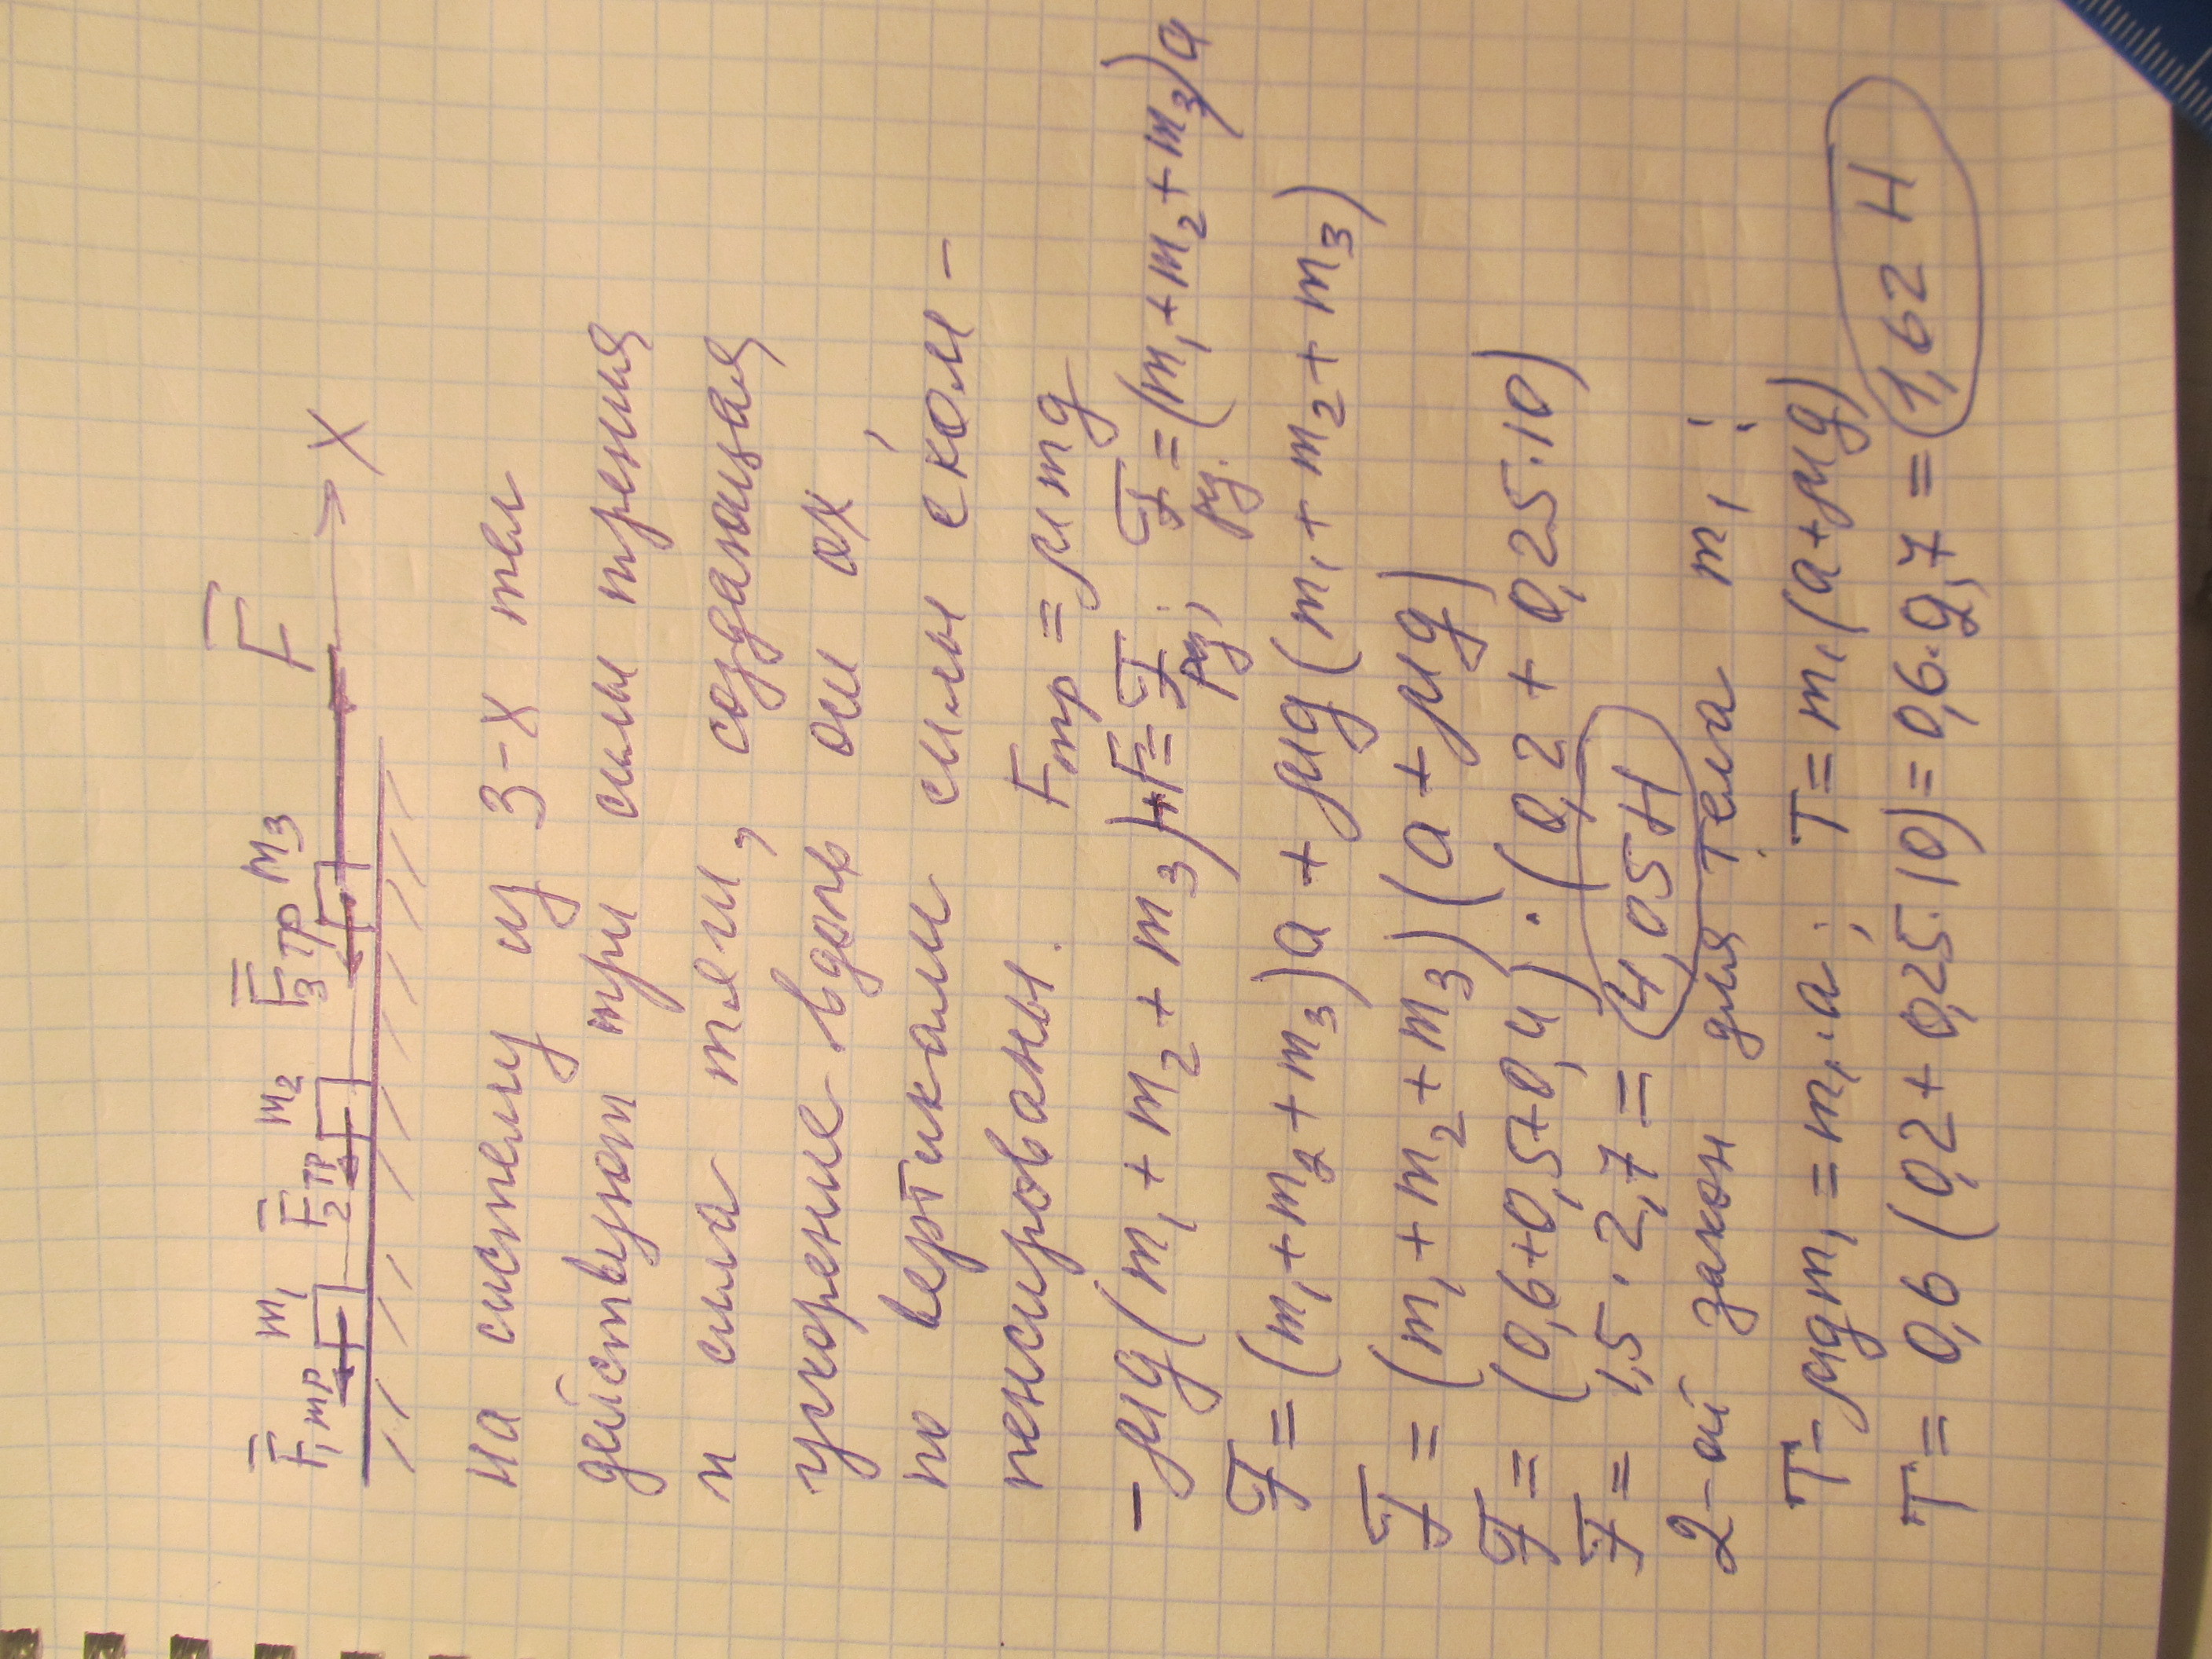 F̅₁тр m₁ F̅₂тр m₂ F̅₃тр m₃ F̅
X
на систему из 3-х тел
действуют три силы трения
и сила тяги, создающая
ускорение вдоль оси ох,
по вертикали силы ском-
пенсированы. Fтр = μmg
-μg(m₁+m₂+m₃)+F=Fру; Fру.=(m₁+m₂+m₃)a
F=(m₁+m₂+m₃)a+μg(m₁+m₂+m₃)
F=(m₁+m₂+m₃)(a+μg)
F=(0,6+0,5+0,4)·(0,2+0,25·10)
F=1,5·2,7=4,05Н
2-ой закон для тела m₁:
T-μgm₁=m₁·a; T=m₁(a+μg)
T=0,6(0,2+0,25·10)=0,6·2,7=1,62 Н